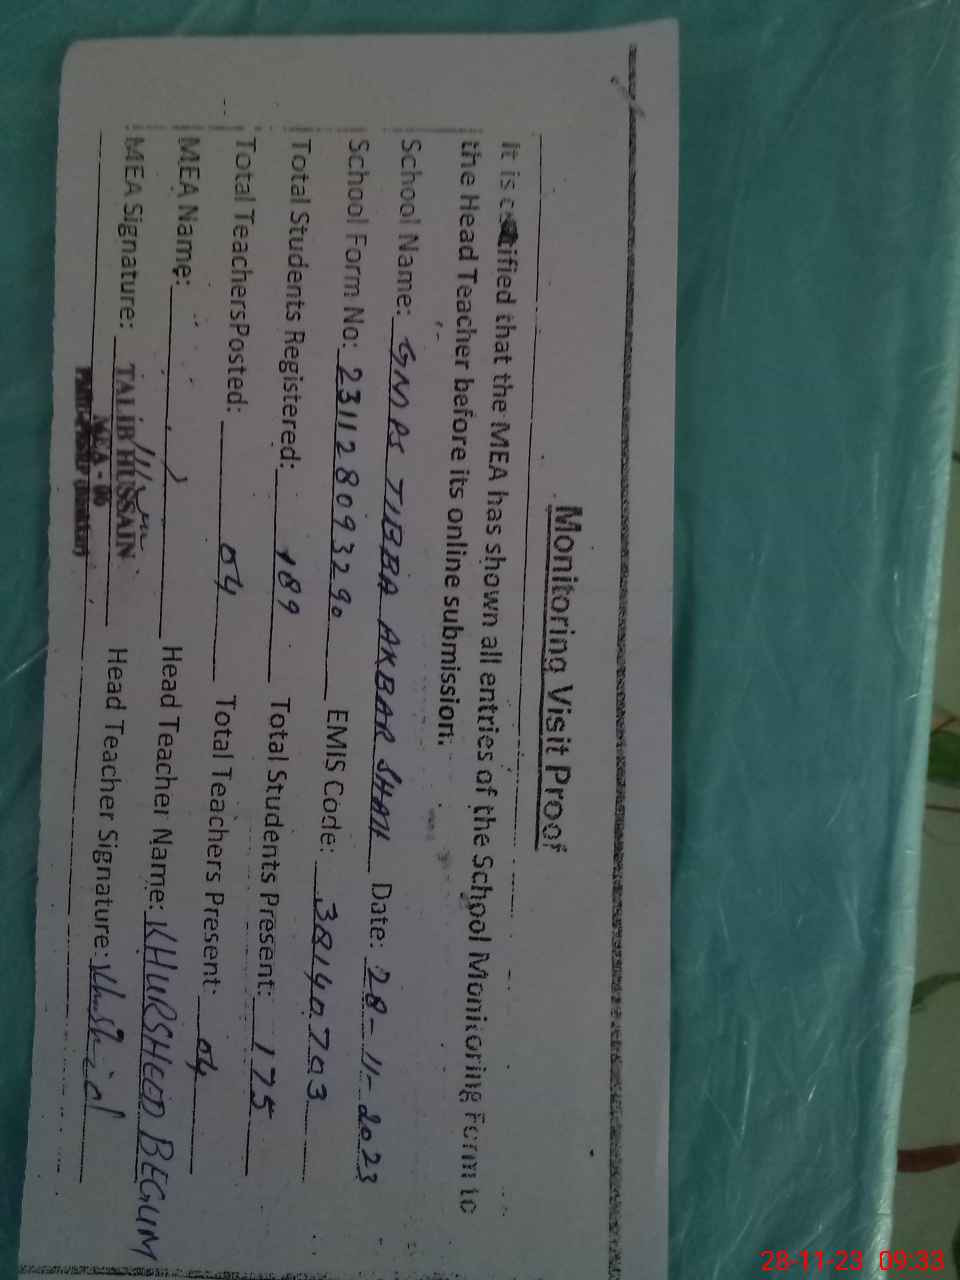 Monitoring Visit Proof
It is certified that the MEA has shown all entries of the School Monitoring Form to
the Head Teacher before its online submission.
School Name: GMPS TIBBA AKBAR SHAH Date: 28-11-2023
School Form No: 231128093290 EMIS Code:
Total Students Registered: 189 Total Students Present: 175
Total TeachersPosted: 04 Total Teachers Present: 04
MEA Name: Head Teacher Name: KHURSHEED BEGUM
MEA Signature: TALIB HUSSAIN Head Teacher Signature: Khurshid
MEA - 06
28-11-23 09:33